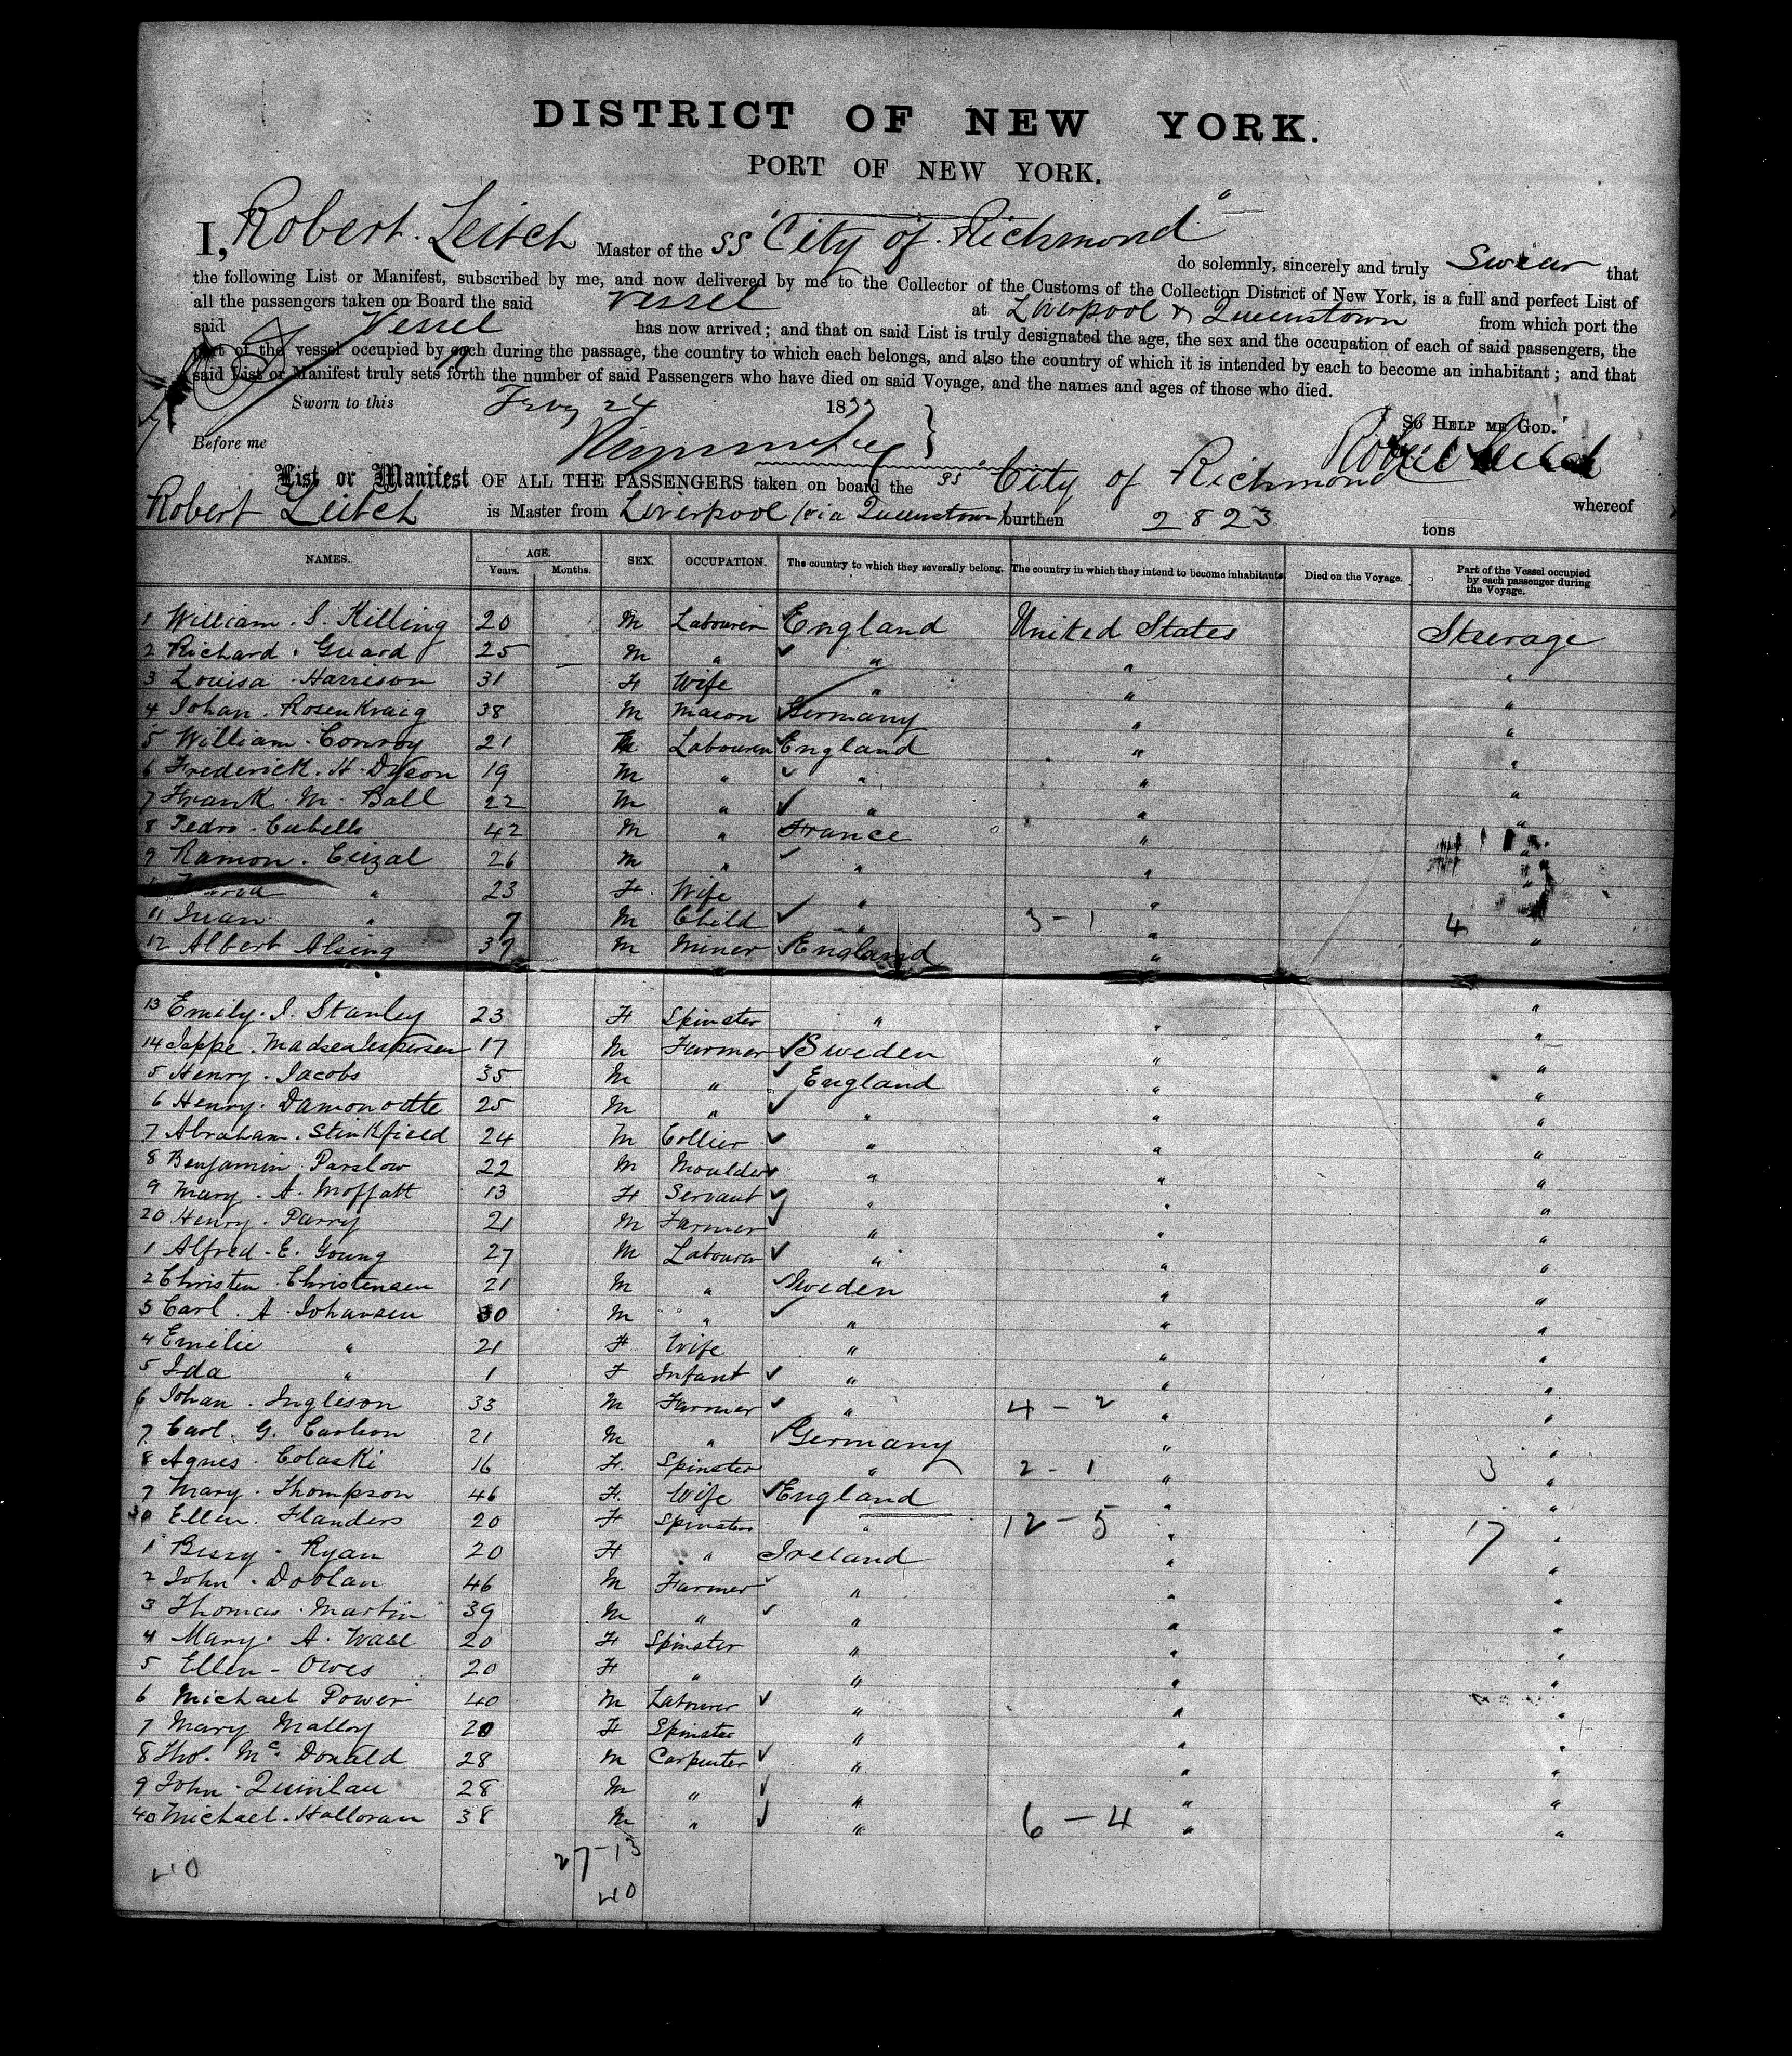 DISTRICT OF NEW YORK.
PORT OF NEW YORK.
I, Robert Leitch Master of the SS "City of Richmond" do solemnly, sincerely and truly Swear that
the following List or Manifest, subscribed by me, and now delivered by me to the Collector of the Customs of the Collection District of New York, is a full and perfect List of
all the passengers taken on Board the said Vessel at Liverpool & Queenstown from which port the
said Vessel has now arrived; and that on said List is truly designated the age, the sex and the occupation of each of said passengers, the
part of the vessel occupied by each during the passage, the country to which each belongs, and also the country of which it is intended by each to become an inhabitant; and that
said List or Manifest truly sets forth the number of said Passengers who have died on said Voyage, and the names and ages of those who died.
Sworn to this Feby 24 18 So HELP ME GOD.
Before me Robert Leitch
List or Manifest OF ALL THE PASSENGERS taken on board the SS City of Richmond whereof
Robert Leitch is Master from Liverpool (via Queenstown) burthen 2823 tons
NAMES. AGE. Years. Months. SEX. OCCUPATION. The country to which they severally belong. The country in which they intend to become inhabitants Died on the Voyage. Part of the Vessel occupied by each passenger during the Voyage.
1 William. S. Killing 20 M Labourer England United States Steerage
2 Richard. Guard 25 M " " " "
3 Louisa. Harrison 31 F Wife " " "
4 Johan. 38 M Mason Germany " "
5 William. Conroy 21 M Labourer England " "
6 Frederick. H. Dyson 19 M " " " "
7 Frank. M. Ball 22 M " " " "
8 Pedro. Cubells 42 M " France " "
9 Ramon. 26 M " " " "
" 23 F Wife " " "
11 Juan " 7 M Child " 3-1 " 4
12 Albert Alsing 37 M Miner England " "
13 Emily. I. Stanley 23 F Spinster " " "
14 Jeppe. Madsen 17 M Farmer Sweden " "
5 Henry. Jacobs 35 M " England " "
6 Henry. 25 M " " " "
7 Abraham. Stinkfield 24 M Collier " " "
8 Benjamin. Parslow 22 M Moulder " " "
9 Mary. A. Moffatt 13 F Servant " " "
20 Henry. Parry 21 M Farmer " " "
1 Alfred. E. Young 27 M Labourer " " "
2 Christen. Christensen 21 M " Sweden " "
3 Carl. A. Johansen 30 M " " " "
4 Emilie " 21 F Wife " " "
5 Ida " 1 F Infant " " "
6 Johan. Ingleson 33 M Farmer " 4-2 " "
7 Carl. G. Carlson 21 M " Germany " "
8 Agnes. Colaski 16 F. Spinster " 2-1 " 3 "
9 Mary. Thompson 46 F. Wife England " "
30 Ellen. Flanders 20 F Spinster " 12-5 " 17 "
1 Bessy. Ryan 20 F " Ireland " "
2 John. Doolan 46 M Farmer " " "
3 Thomas. Martin 39 M " " " "
4 Mary. A. Wall 20 F Spinster " " "
5 Ellen. 20 F " " " "
6 Michael Power 40 M Labourer " " "
7 Mary Malloy 20 F Spinster " " "
8 Thos. McDonald 28 M Carpenter " " "
9 John. Quinlan 28 M " " " "
40 Michael. Halloran 38 M " " 6-4 " "
27-13
40 40